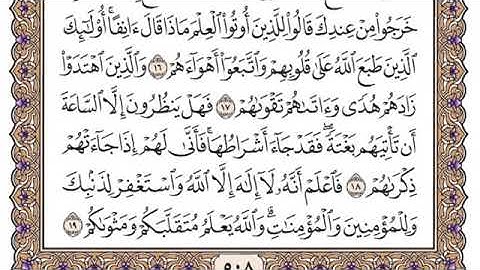 خَرَجُوا۟ مِنْ عِندِكَ قَالُوا۟ لِلَّذِينَ أُوتُوا۟ ٱلْعِلْمَ مَاذَا قَالَ ءَانِفًا ۚ أُو۟لَـٰٓئِكَ
ٱلَّذِينَ طَبَعَ ٱللَّهُ عَلَىٰ قُلُوبِهِمْ وَٱتَّبَعُوٓا۟ أَهْوَآءَهُمْ ١٦ وَٱلَّذِينَ ٱهْتَدَوْا۟
زَادَهُمْ هُدًى وَءَاتَىٰهُمْ تَقْوَىٰهُمْ ١٧ فَهَلْ يَنظُرُونَ إِلَّا ٱلسَّاعَةَ
أَن تَأْتِيَهُم بَغْتَةً ۖ فَقَدْ جَآءَ أَشْرَاطُهَا ۚ فَأَنَّىٰ لَهُمْ إِذَا جَآءَتْهُمْ
ذِكْرَىٰهُمْ ١٨ فَٱعْلَمْ أَنَّهُۥ لَآ إِلَـٰهَ إِلَّا ٱللَّهُ وَٱسْتَغْفِرْ لِذَنۢبِكَ
وَلِلْمُؤْمِنِينَ وَٱلْمُؤْمِنَـٰتِ ۗ وَٱللَّهُ يَعْلَمُ مُتَقَلَّبَكُمْ وَمَثْوَىٰكُمْ ١٩
٥٠٨